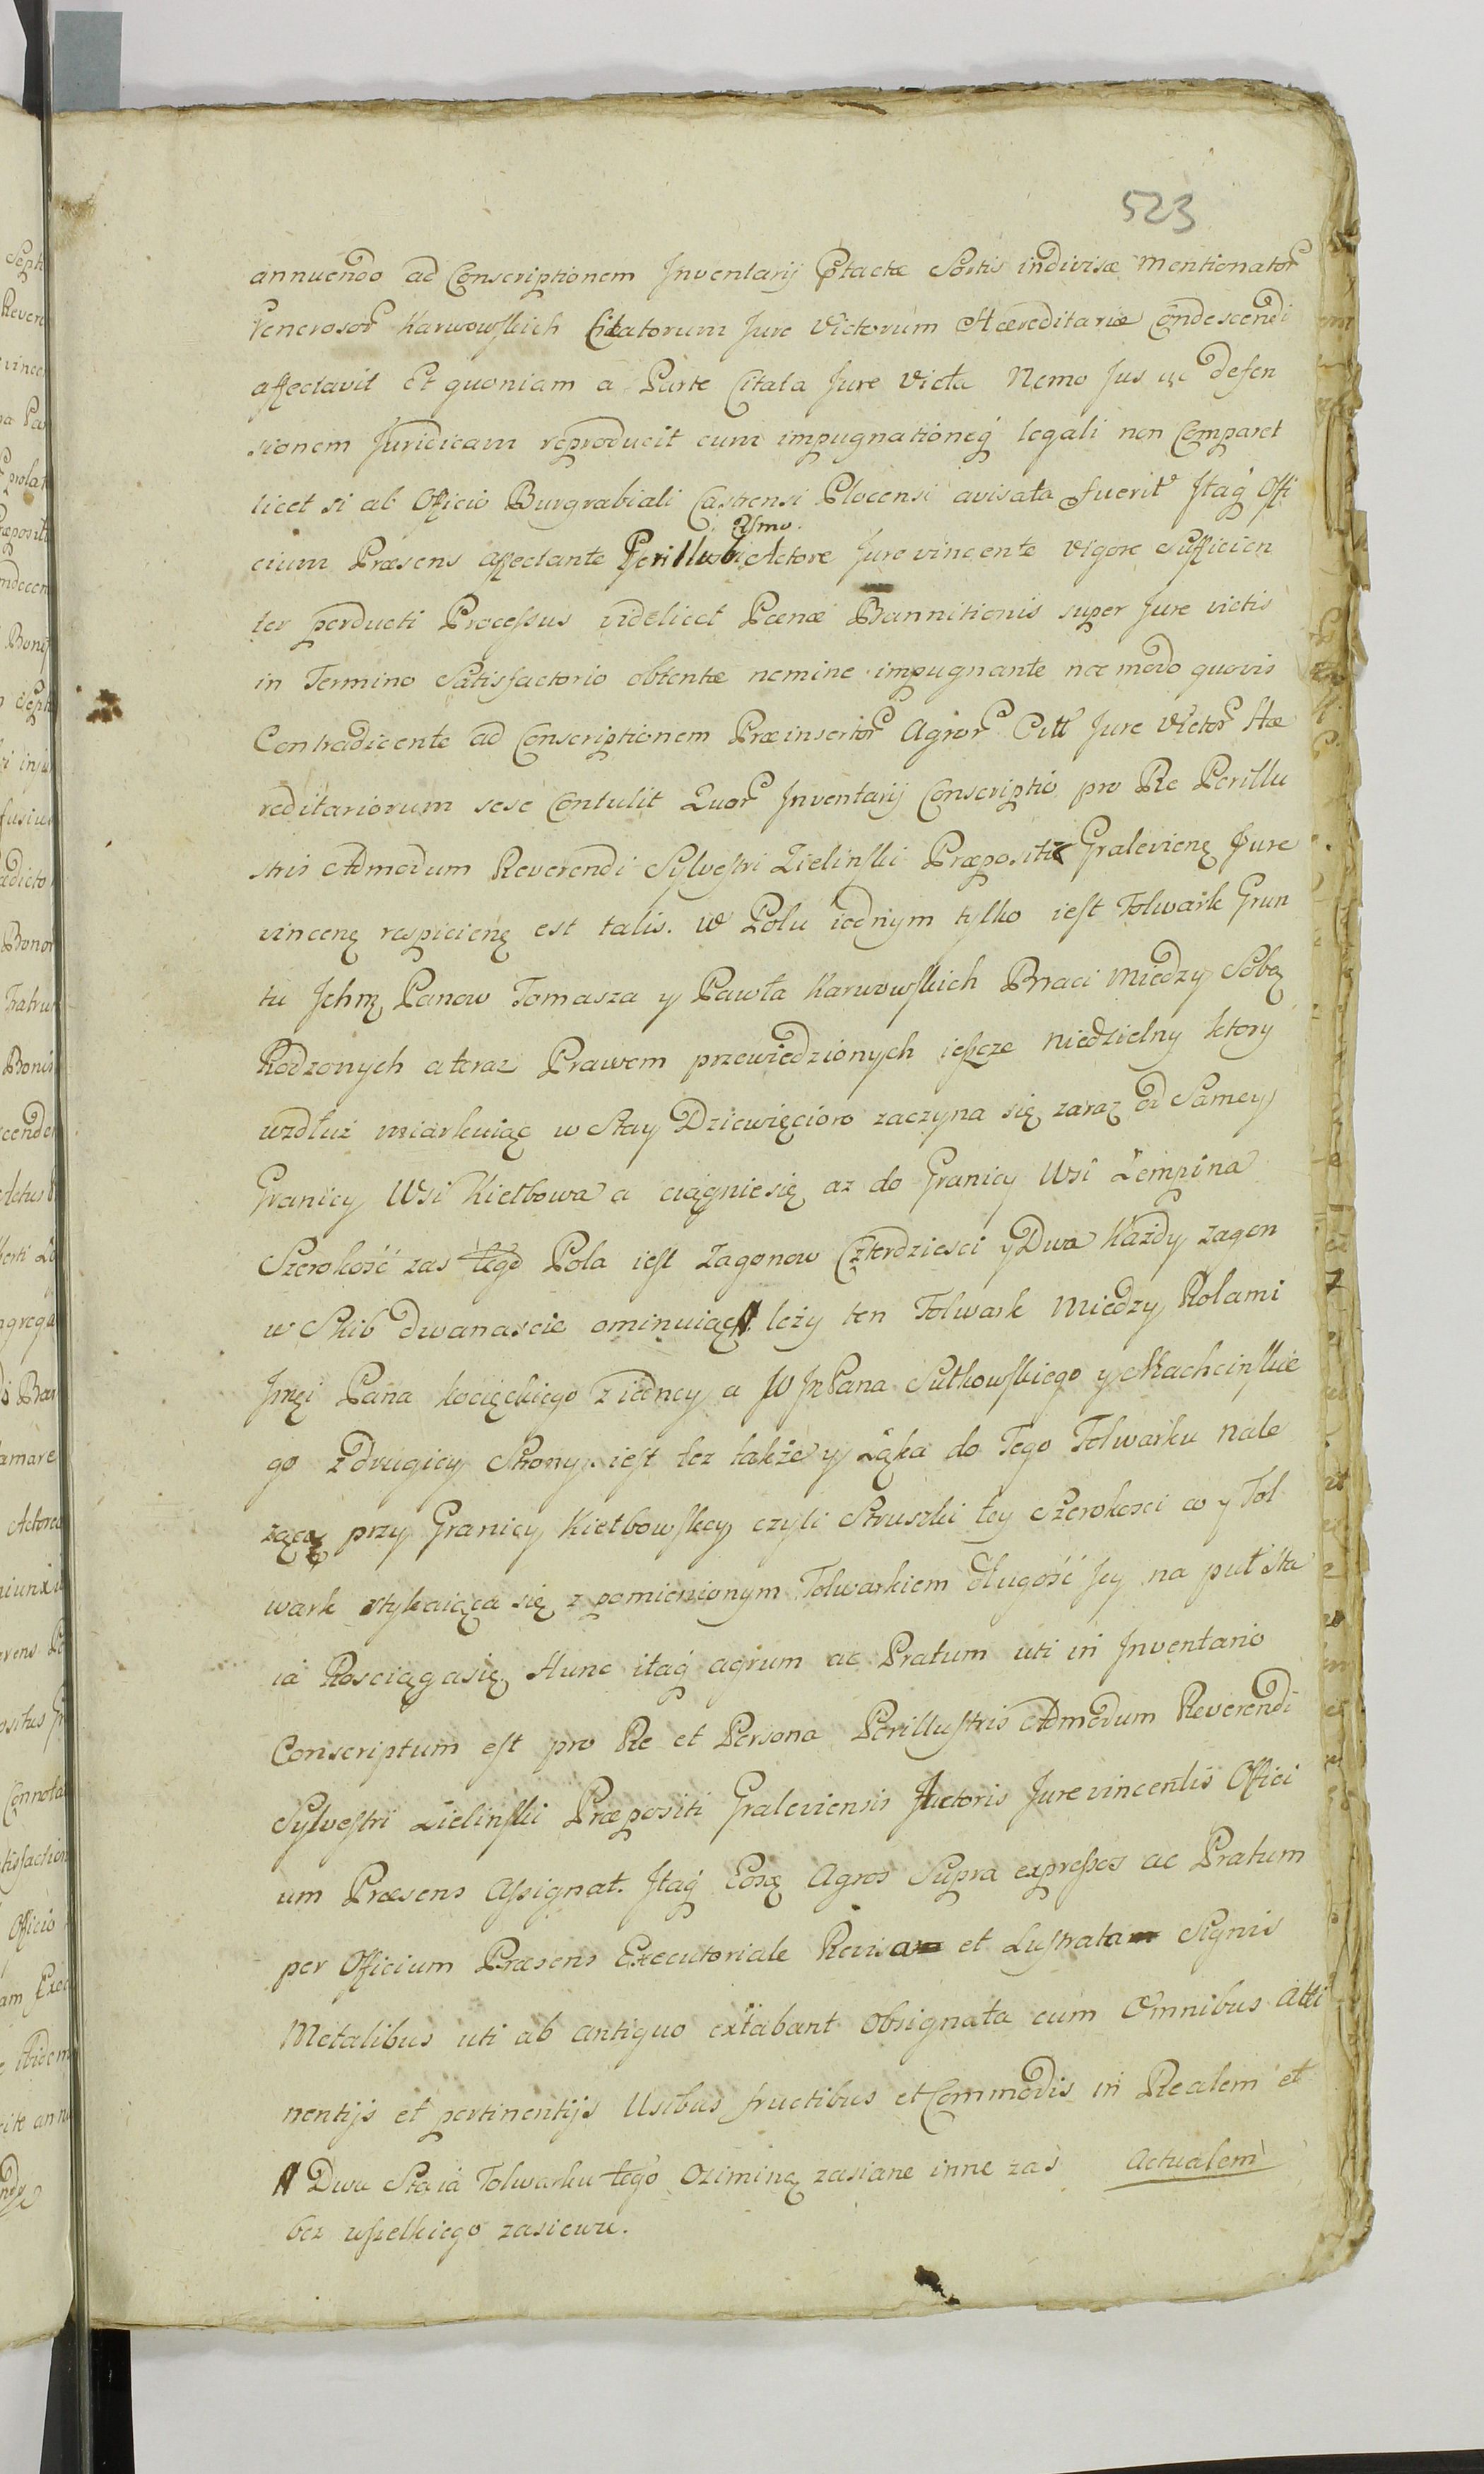 523
annuendo ad Conscriptionem Inventarij Ptactæ Sortis indivisæ Mentionator
Generosor Karwowskich Citatorum Jure Victorum Hæreditariæ Condescendi
affectavit Et quoniam a Parte Citata Jure Victa Nemo Jus ac defen
sionem Juridicam reproducit cum impugnationeq legali non Comparet
licet si ab Officio Burgrabiali Castrensi Plocensi avisata fuerit Itaq Offi
Rsmo.
cium Præsens affectante Perillustri Actore Jure vincente vigore Sufficien
ter perducti Processus videlicet Pœnæ Bannitionis super Jure victis
in Termino Satisfactorio obtentæ nemine impugnante nec modo quovis
Contradicente ad Conscriptionem Præinsertor Agror Citt Jure Victor Hæ
reditariorum sese Contulit Quor Inventarij Conscriptio pro Re Perillu
stris Admodum Reverendi Sylvestri Zielinski Præpositi Gralevien Jure
vincen respicien est talis. W Polu iednym tylko iest Folwark Grun
tu Ichm Panow Tomasza y Pawła Karwowskich Braci Między Sobą
Rodzonych a teraz Prawem przewiedzionych ieszcze niedzielny ktory
wzdłuż miarkuiąc w Stay Dziewięcioro zaczyna się zaraz od Samey
Granicy Wsi Kiełbowa a ciągnie się az do Granicy Wsi Łempina
Szerokość zas tego Pola iest Zagonow Czterdziesci y Dwa Każdy zagon
w Skib dwanascie ominuiąc # leży ten Folwark Między Rolami
Jmci Pana Kocięckiego z iedney a W Jx Pana Sutkowskiego y Machcinskie
go z drugiey Strony iest tez także y Łąka do Tego Folwarku nale
żąca przy Granicy Kiełbowskey czyli Struszki tey Szerokosci co y Fol
wark stykaiąca się z pomienionym Folwarkiem długość Jey na puł Sta
ia Rosciąga się. Hunc itaq agrum ac Pratum uti in Inventario
Conscriptum est pro Re et Persona Perillustris Admodum Reverendi
Sylvestri Zielinski Præpositi Graleviensis Actoris Jure vincentis Offici
um Præsens Assignat. Itaq Eosq Agros Supra expressos ac Pratum
per Officium Præsens Executoriale Revisa et Lustrata Signis
Metalibus uti ab antiquo extabant obsignata cum Omnibus Atti
nentijs et pertinentijs Usibus fructibus et Commodis in Realem et
# Dwa Staia Folwarku tego Oziminą zasiane inne zas Actualem
bez wszelkiego zasiewu.